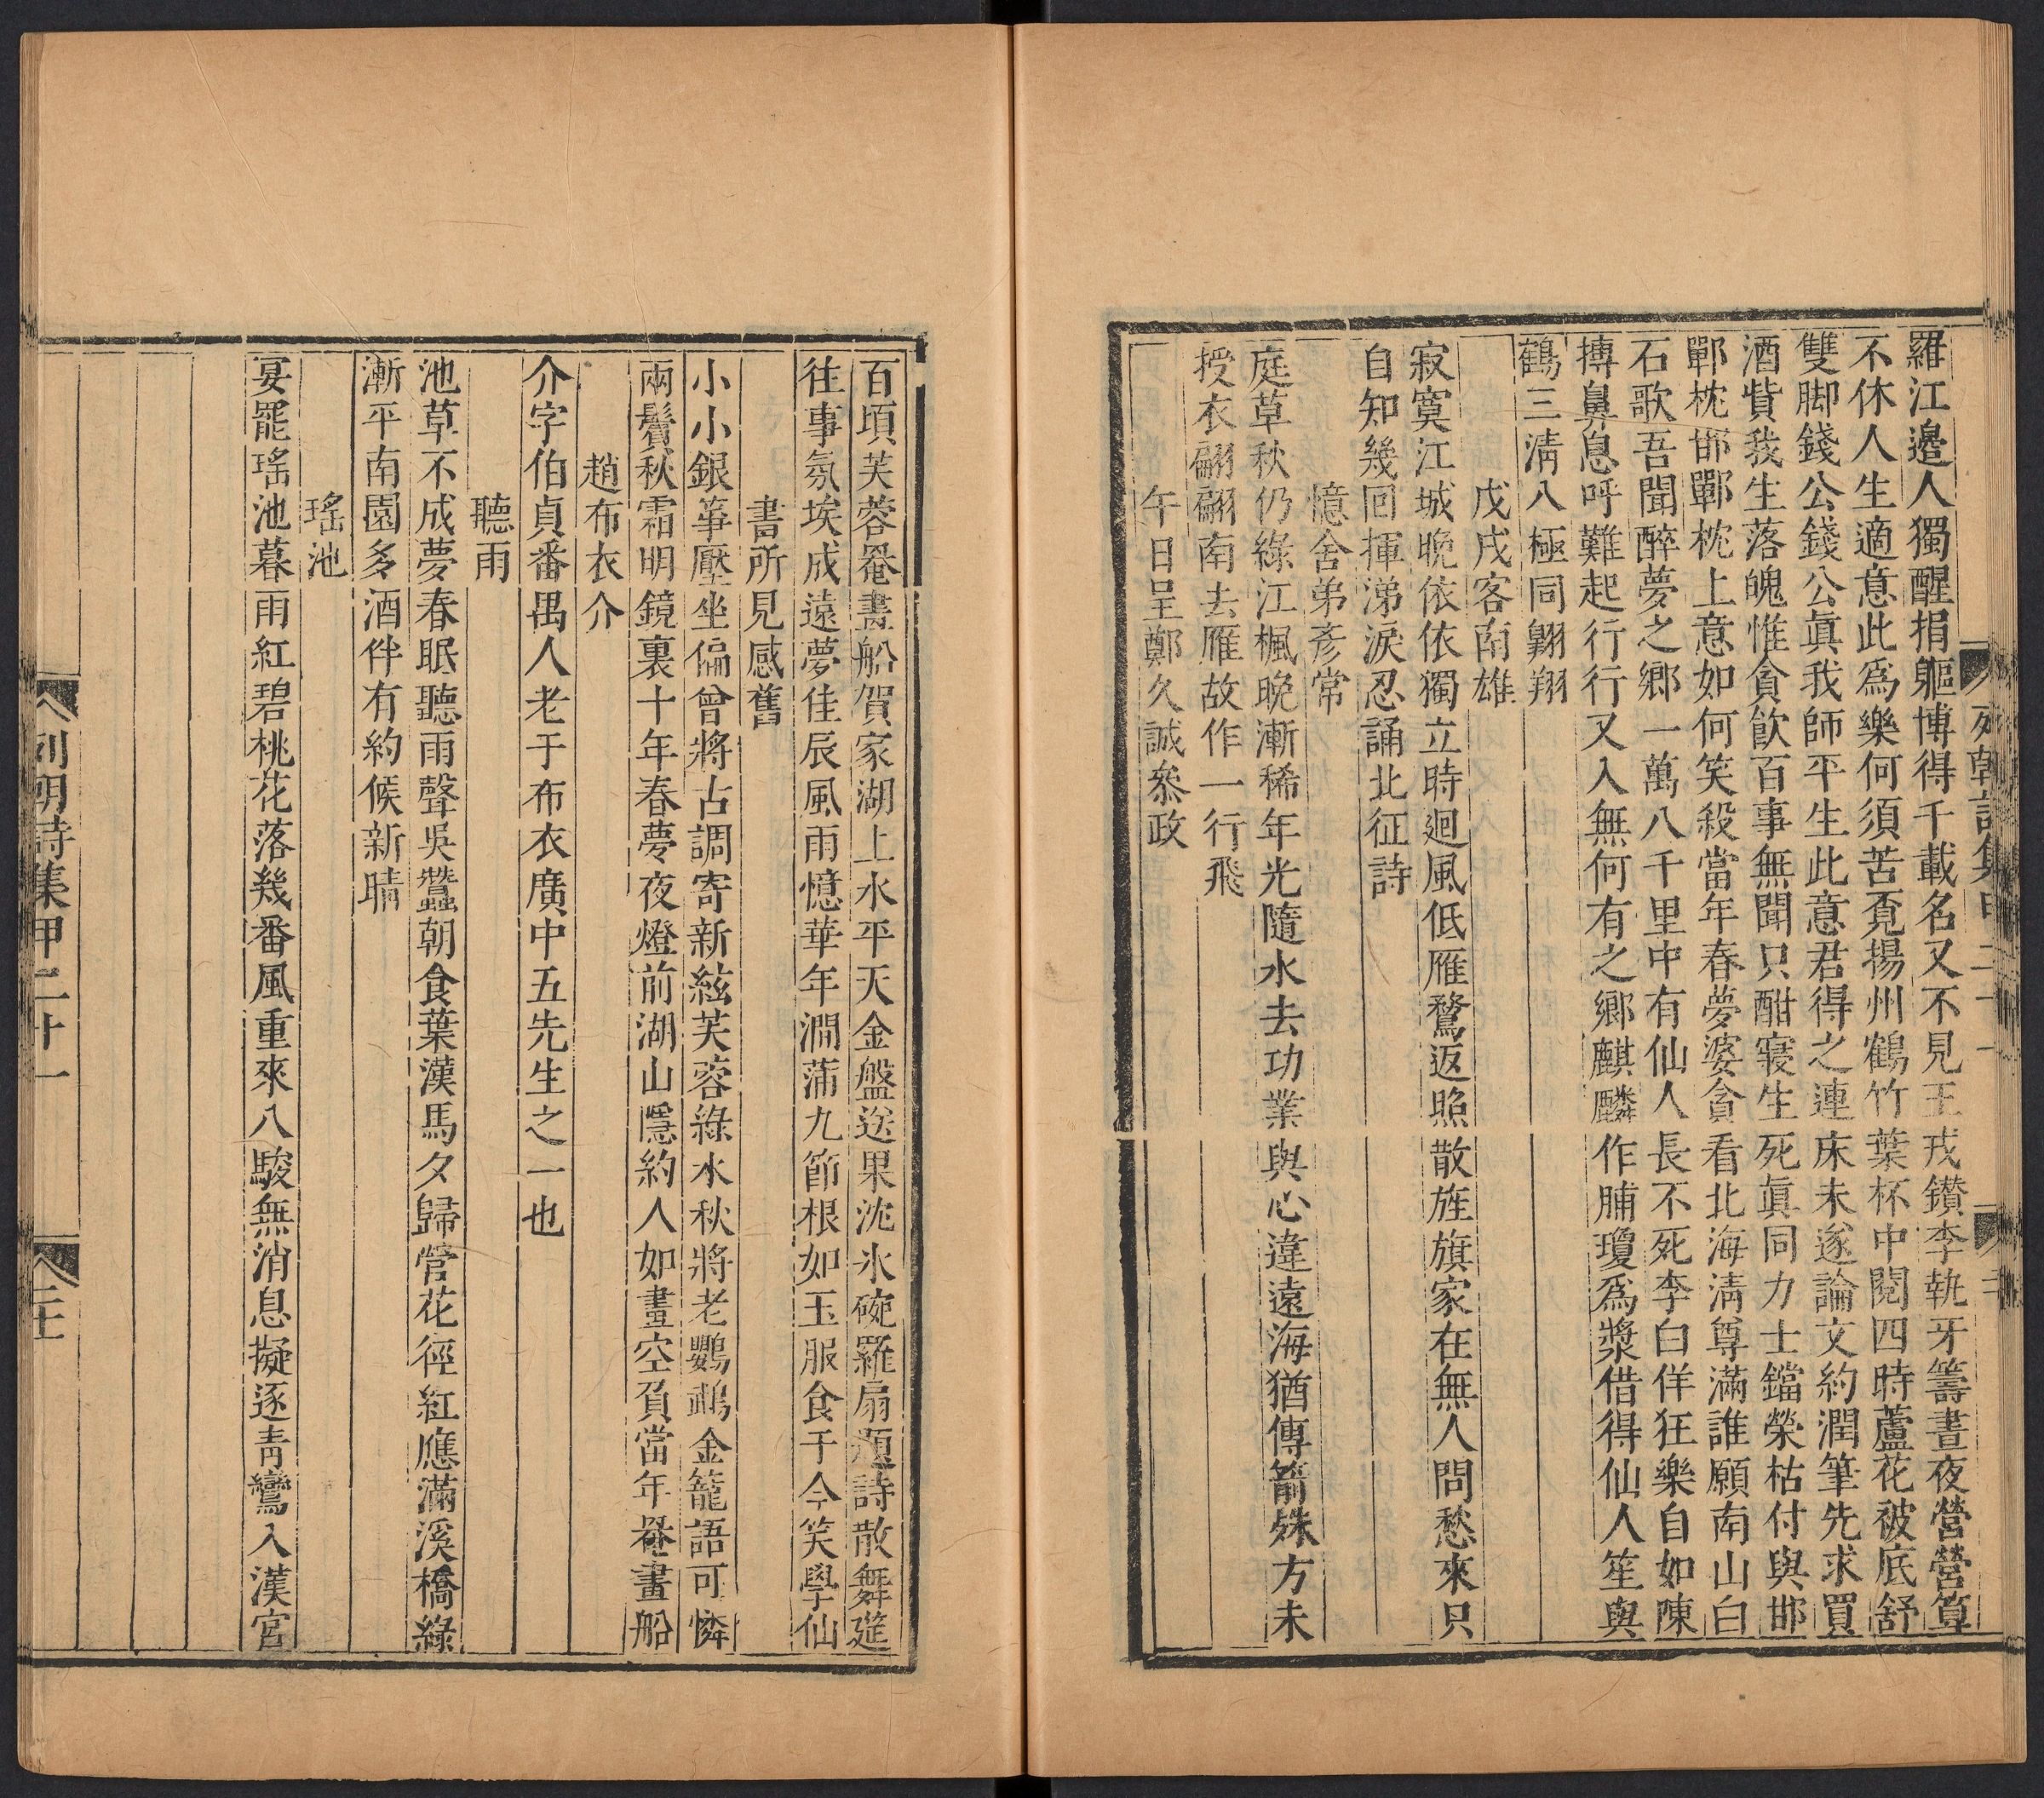 羅江邉人獨醒捐軀博得千載名又不見王戎鑚李執牙籌晝夜營營算
不休人生適意此爲樂何須苦覔揚州鶴竹葉杯中閱四時蘆花被底舒
雙脚錢公錢公眞我師平生此意君得之連床未遂論文約潤筆先求買
酒貲我生落魄惟貪飲百事無聞只酣寝生死眞同力士鐺榮枯付與邯
鄲枕邯鄲枕上意如何笑殺當年春夢婆貪看北海淸尊滿誰願南山白
石歌吾聞醉夢之鄉一萬八千里中有仙人長不死李白佯狂樂自如陳
摶鼻息呼難起行行又入無何有之鄉麒麟作脯瓊爲漿借得仙人笙與
鶴三淸八極同翺翔
戊戌客南雄
寂寞江城晚依依獨立時迴風低雁鶩返照散旌旗家在無人問愁來只
自知幾回揮涕淚忍誦北征詩
憶舍弟彥常
庭草秋仍綠江楓晚漸稀年光隨水去功業與心違遠海猶傳箭殊方未
授衣翩翩南去雁故作一行飛
午日呈鄭久誠叅政
百頃芙蓉罨畫船賀家湖上水平天金盤送果沈氷碗羅扇題詩散舞筵
往事氛埃成遠夢佳辰風雨憶華年澗蒲九節根如玉服食于今笑學仙
書所見感舊
小小銀箏壓坐偏曾將古調寄新絃芙蓉綠水秋將老鸚鵡金籠語可憐
兩鬢秋霜明鏡裏十年春夢夜燈前湖山隱約人如畫空負當年罨畫船
趙布衣介
介字伯貞番禺人老于布衣廣中五先生之一也
聽雨
池草不成夢春眠聽雨聲吳蠶朝食葉漢馬夕歸營花徑紅應滿溪橋綠
漸平南園多酒伴有約候新晴
瑤池
宴罷瑤池暮雨紅碧桃花落幾番風重來八駿無消息擬逐青鸞入漢宮
列朝詩集甲二十一